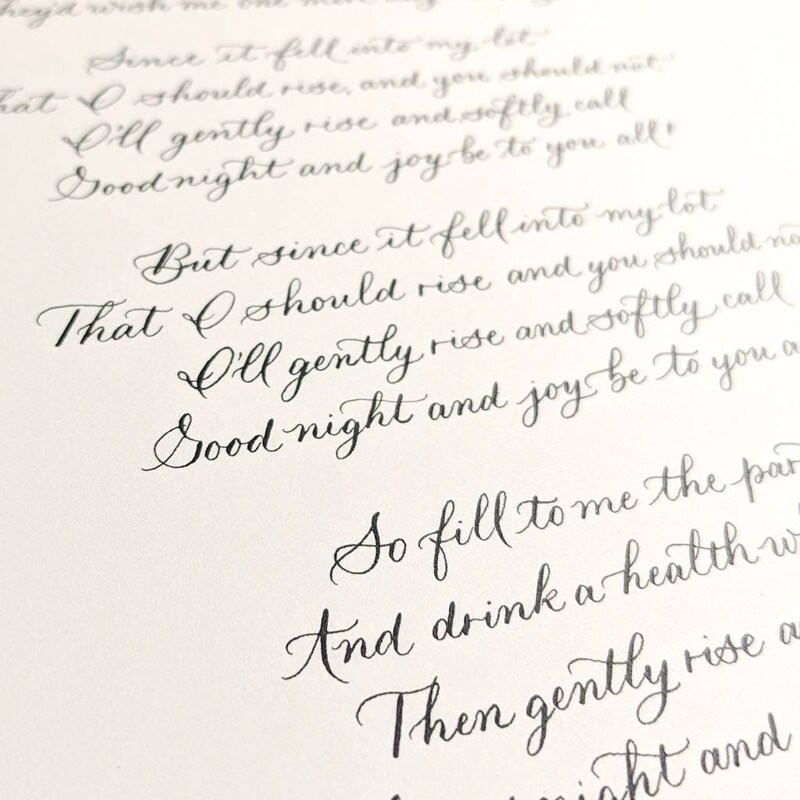 They'd wish me one more
Since it fell into my lot
That I should rise, and you should not
I'll gently rise and softly call
Good night and joy be to you all!
But since it fell into my lot
That I should rise and you should
I'll gently rise and softly call
Good night and joy be to you
So fill to me the
And drink a health
Then gently rise
night and